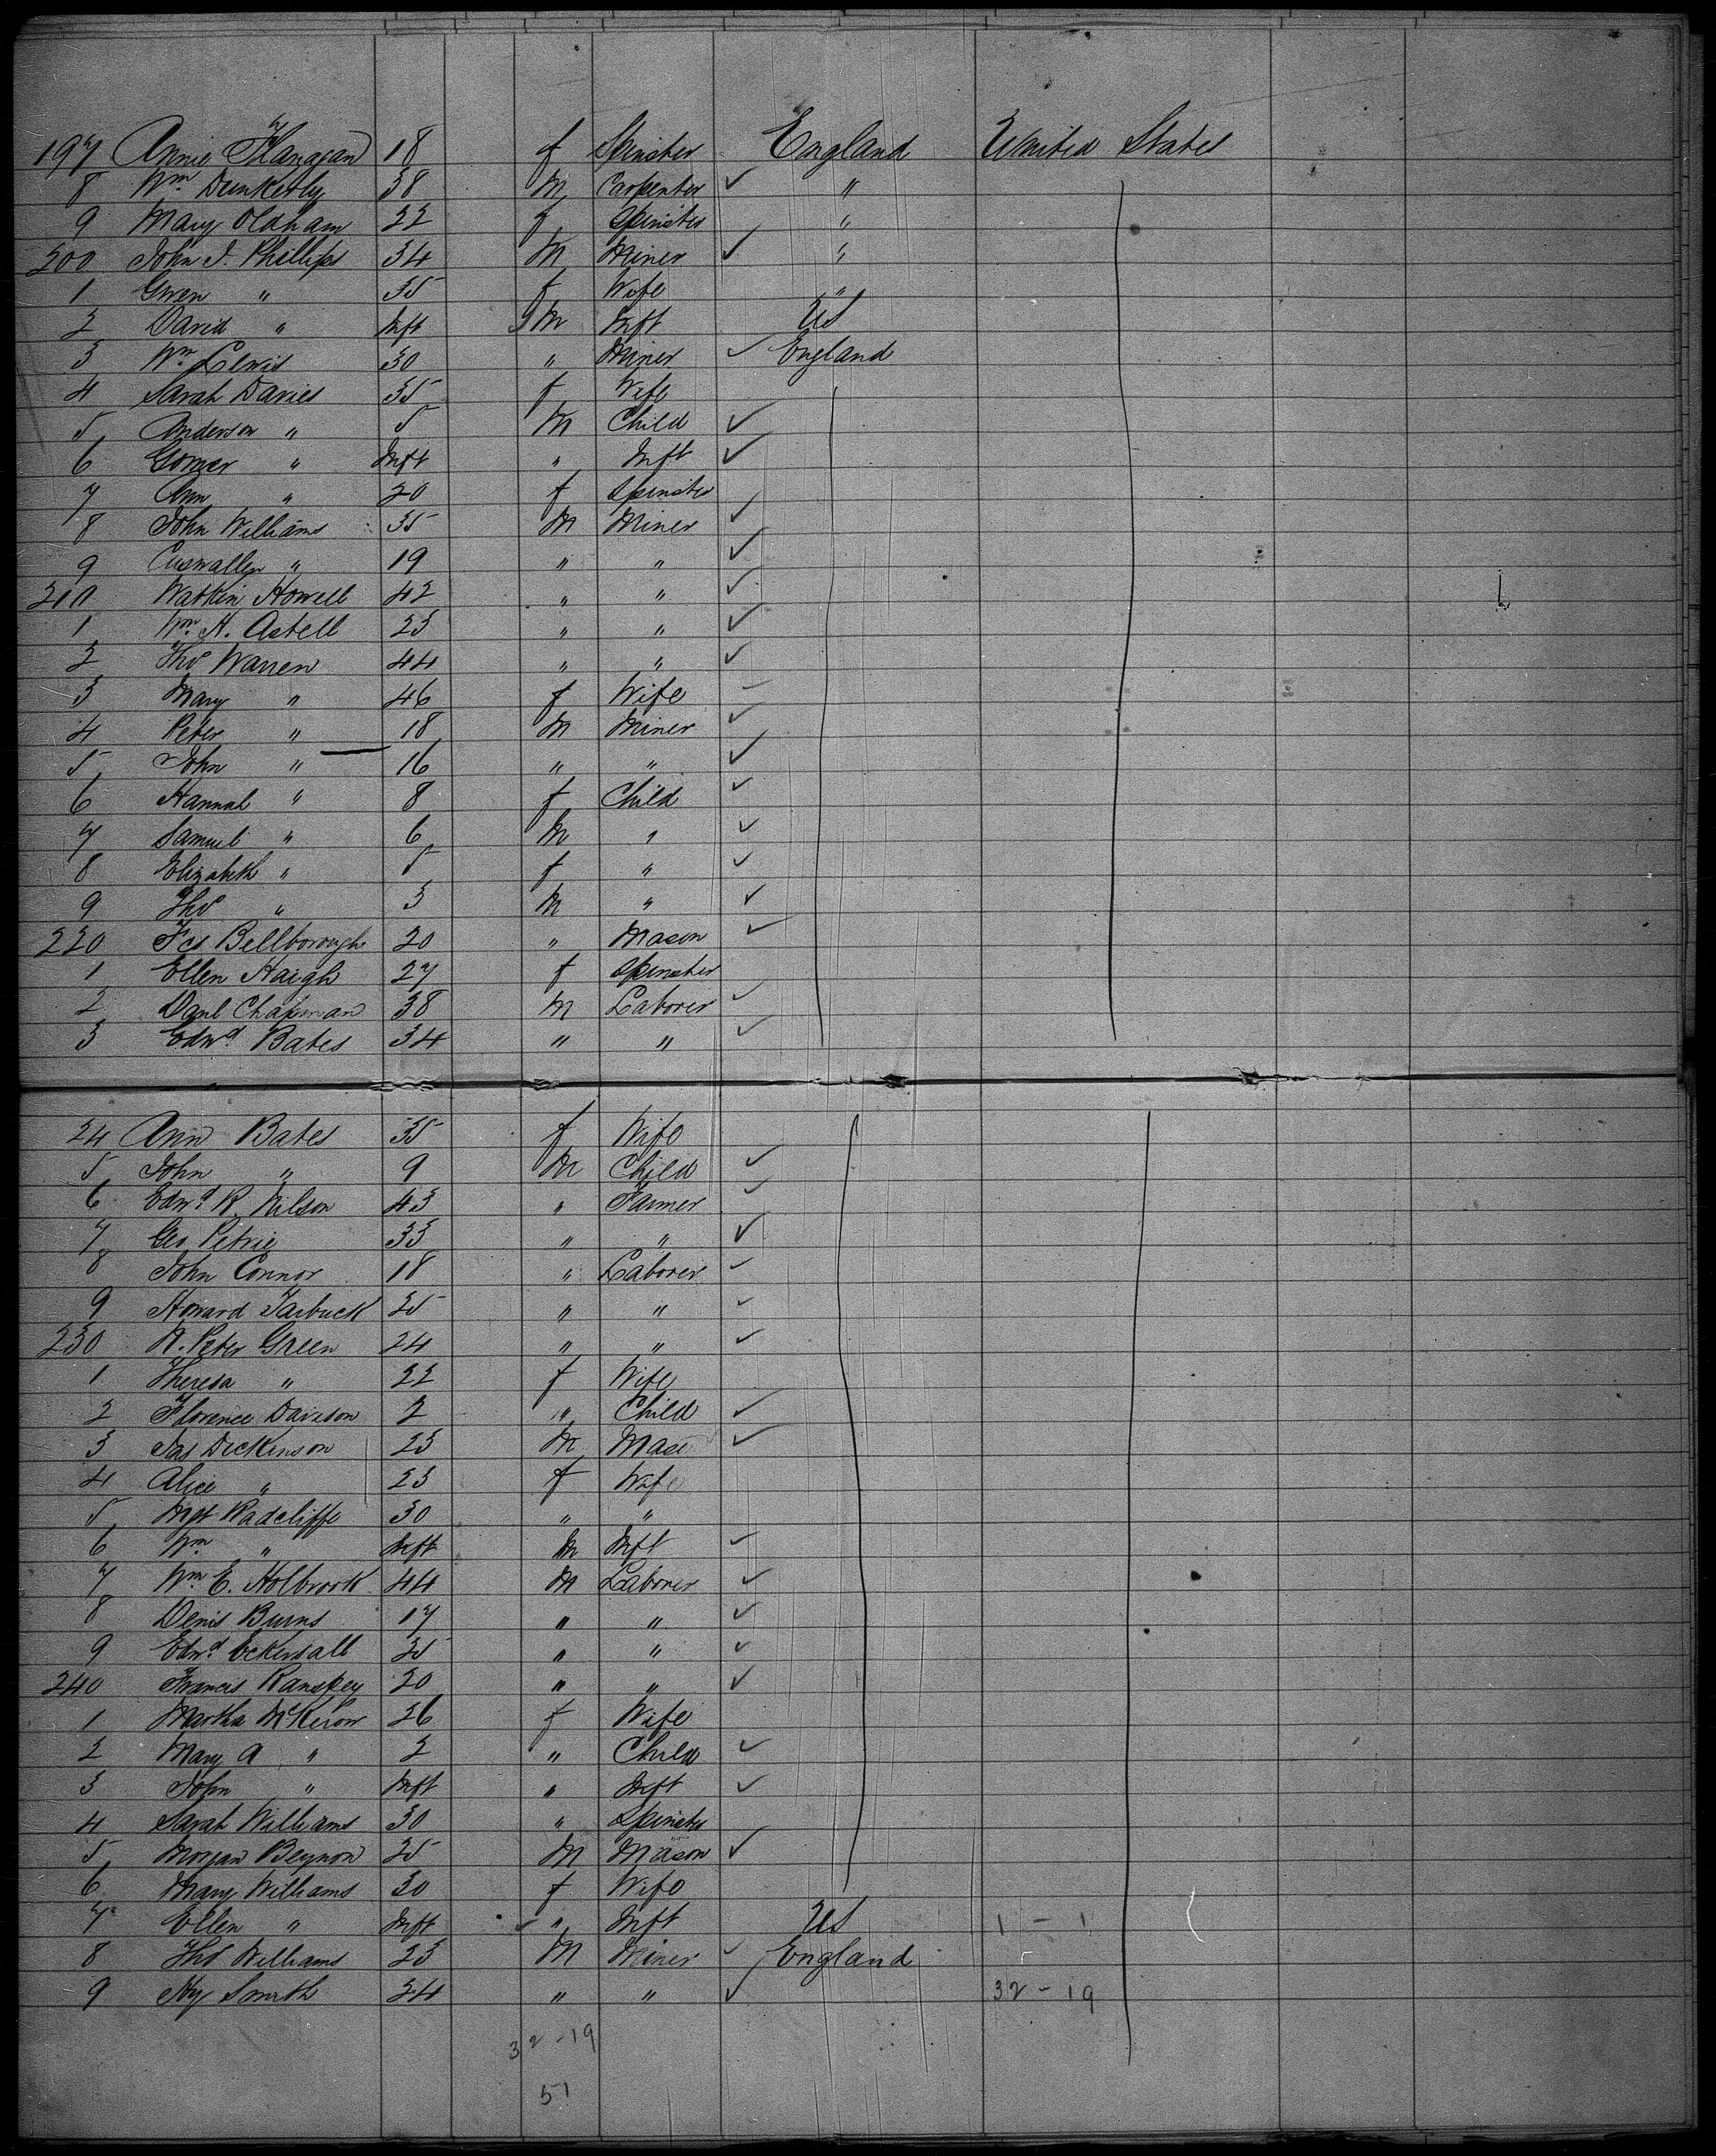 197 Annie Flanagan 18 f Spinster England United States
8 Wm Dunkerly 38 M Carpenter ✓ "
9 Mary Oldham 22 f Spinster "
200 John J. Phillips 34 M Miner ✓ "
1 Gwen " 35 f Wife "
2 David " Inft M Inft US
3 Wm Lewis 30 " Miner ✓ England
4 Sarah Davies 35 f Wife
5 Anderson " 5 M Child ✓
6 Gomer " Inft " Inft ✓
7 Ann " 20 f Spinster
8 John Williams 35 M Miner ✓
9 " 19 " " ✓
210 Watkin Howell 42 " " ✓
1 Wm H. Astell 23 " " ✓
2 Thos Warren 44 " " ✓
3 Mary " 46 f Wife
4 Peter " 18 M Miner ✓
5 John " 16 " " ✓
6 Hannah " 8 f Child ✓
7 Samuel " 6 M " ✓
8 Elizabeth " 5 f " ✓
9 Thos " 3 M " ✓
220 Fcs Bellborough 20 " Mason ✓
1 Ellen Haigh 27 f Spinster
2 Danl Chapman 38 M Laborer ✓
3 Edwd Bates 34 " " ✓
24 Ann Bates 35 f Wife
5 John " 9 M Child ✓
6 Edwd R. Wilson 43 " Farmer ✓
7 Geo Petrie 33 " " ✓
8 John Connor 18 " Laborer ✓
9 Howard Tarbuck 25 " " ✓
230 N. Peter Green 24 " " ✓
1 Theresa " 22 f Wife
2 Florence Davison 2 " Child ✓
3 Jas Dickinson 23 M Maso ✓
4 Alice " 23 f Wife
5 Mgt Radcliffe 30 " "
6 Wm " Inft M Inft ✓
7 Wm E. Holbrook 44 M Laborer ✓
8 Denis Burns 17 " " ✓
9 Edwd Eckersall 25 " " ✓
240 Francis Ranskey 20 " " ✓
1 Martha McKeron 26 f Wife
2 Mary A " 2 " Child ✓
3 John " Inft " Inft ✓
4 Sarah Williams 30 " Spinster
5 Morgan Beynon 25 M Mason ✓
6 Mary Williams 30 f Wife
7 Ellen " Inft " Inft US 1 - 1
8 Thos Williams 23 M Miner ✓ England
9 Hy Smith 24 " " ✓ 32 - 19
32 - 19
51